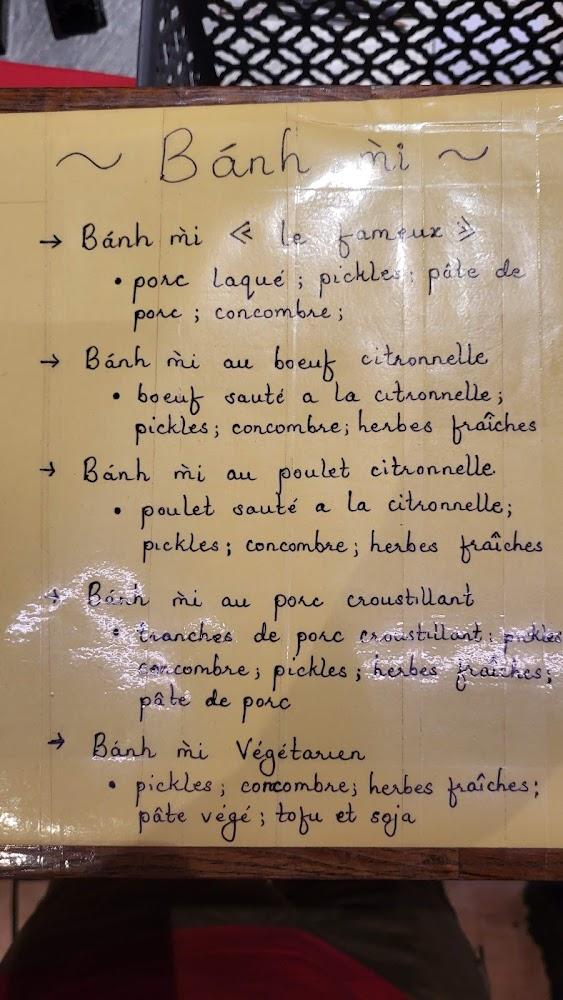 ~ Bánh mì ~
→ Bánh mì « le fameux »
• porc laqué ; pickles ; pâte de
porc ; concombre ;
→ Bánh mì au boeuf citronnelle
• boeuf sauté a la citronnelle ;
pickles ; concombre ; herbes fraîches
→ Bánh mì au poulet citronnelle
• poulet sauté a la citronnelle ;
pickles ; concombre ; herbes fraîches
→ Bánh mì au porc croustillant
• tranches de porc croustillant ; pickles
concombre ; pickles ; herbes fraîches ;
pâte de porc
→ Bánh mì Végétarien
• pickles ; concombre ; herbes fraîches ;
pâte végé ; tofu et soja